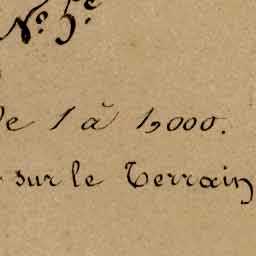 N° 5e
de 1 à 1,000.
sur le Terrain